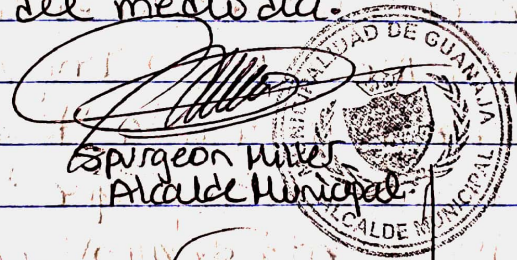 del mediodia.
Spurgeon Miller
Alcalde Municipal.
MUNICIPALIDAD DE GUANAJA
ALCALDE MUNICIPAL